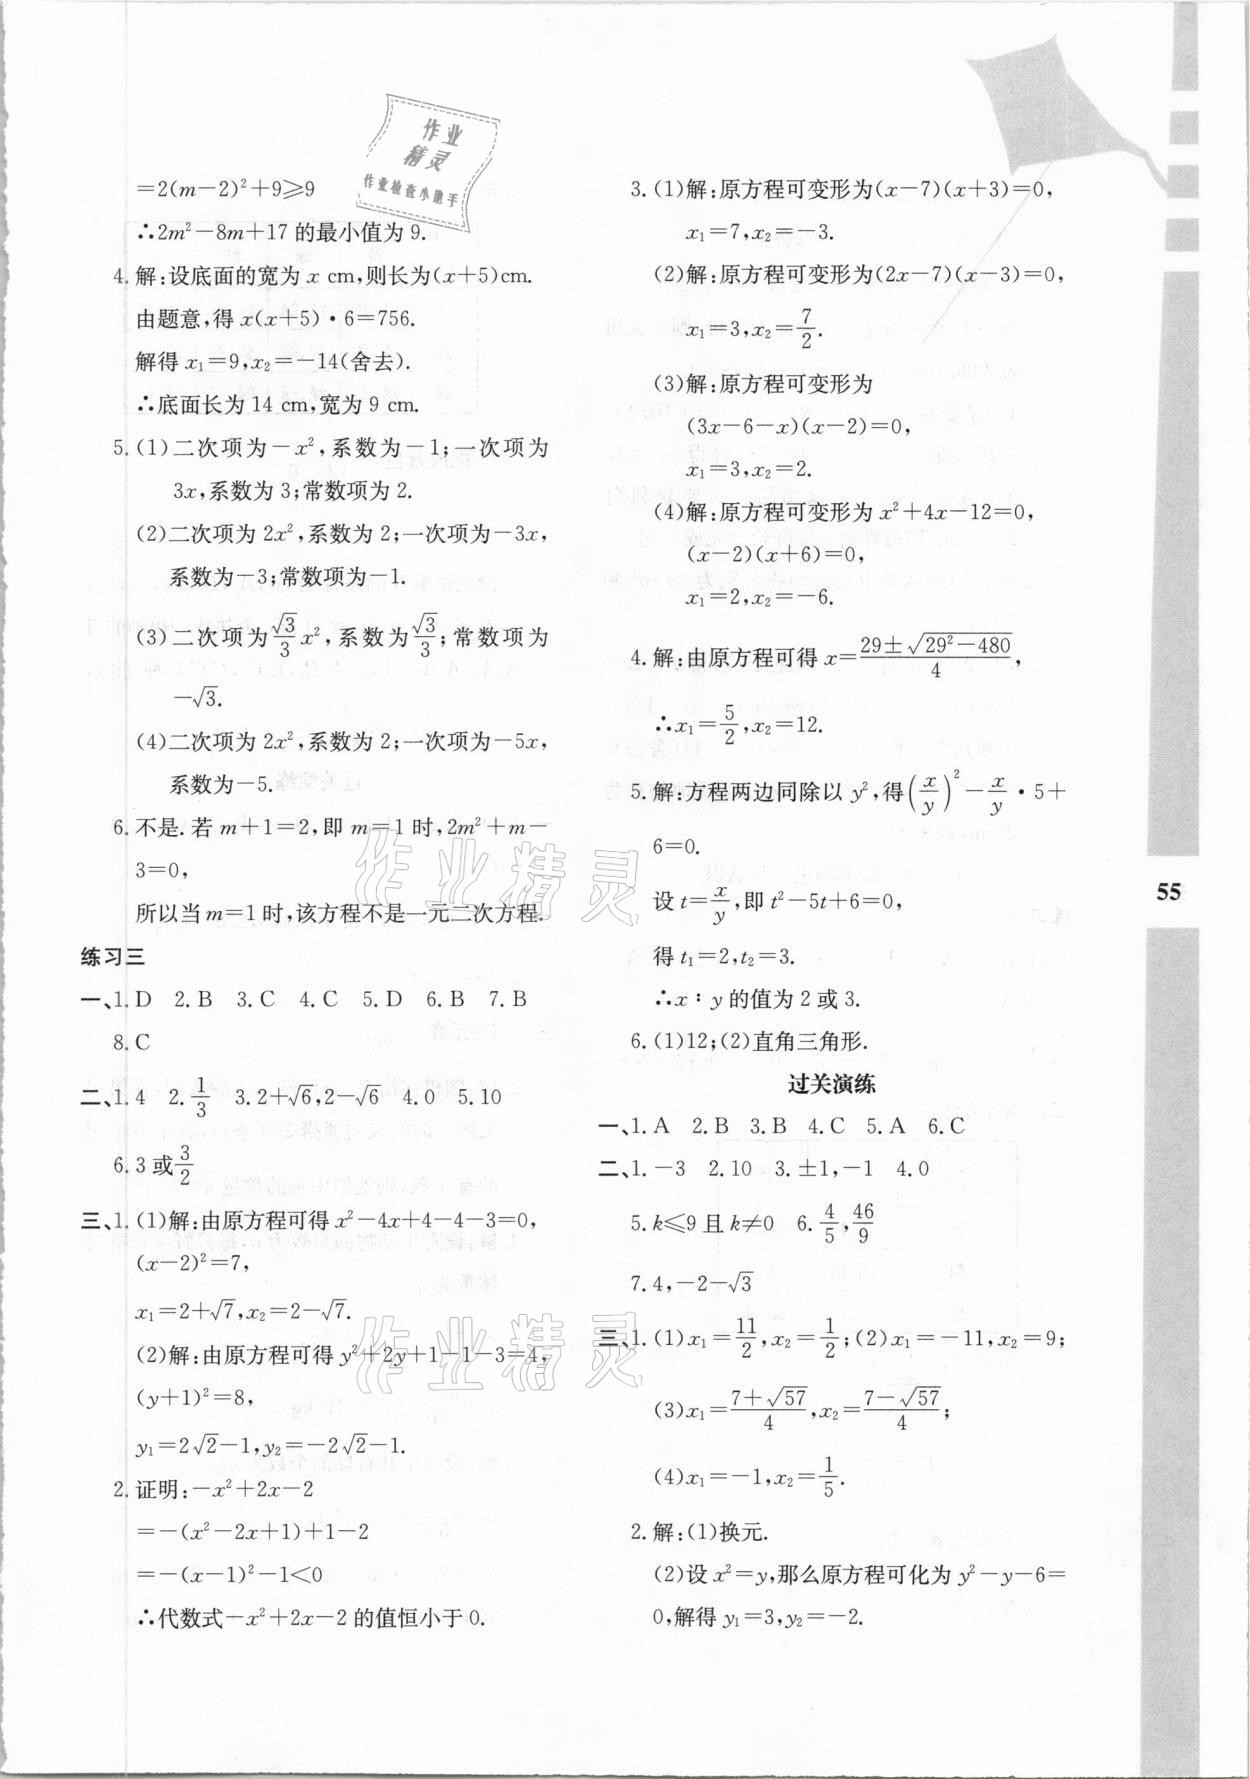 作业
精灵
作业检查小助手
=2(m-2)²+9⩾9
∴2m²-8m+17 的最小值为 9.
4. 解:设底面的宽为 x cm,则长为(x+5)cm.
由题意,得 x(x+5)·6=756.
解得 x₁=9,x₂=-14(舍去).
∴底面长为 14 cm,宽为 9 cm.
5. (1)二次项为-x²,系数为-1;一次项为
3x,系数为 3;常数项为 2.
(2)二次项为 2x²,系数为 2;一次项为-3x,
系数为-3;常数项为-1.
(3)二次项为√3/3 x²,系数为√3/3;常数项为
-√3.
(4)二次项为 2x²,系数为 2;一次项为-5x,
系数为-5.
6. 不是. 若 m+1=2,即 m=1 时,2m²+m-
3=0,
所以当 m=1 时,该方程不是一元二次方程.
练习三
一、1. D 2. B 3. C 4. C 5. D 6. B 7. B
8. C
二、1. 4 2. 1/3 3. 2+√6,2-√6 4. 0 5. 10
6. 3 或 3/2
三、1. (1)解:由原方程可得 x²-4x+4-4-3=0,
(x-2)²=7,
x₁=2+√7,x₂=2-√7.
(2)解:由原方程可得 y²+2y+1-1-3=4,
(y+1)²=8,
y₁=2√2-1,y₂=-2√2-1.
2. 证明:-x²+2x-2
=-(x²-2x+1)+1-2
=-(x-1)²-1<0
∴代数式-x²+2x-2 的值恒小于 0.
3. (1)解:原方程可变形为(x-7)(x+3)=0,
x₁=7,x₂=-3.
(2)解:原方程可变形为(2x-7)(x-3)=0,
x₁=3,x₂=7/2.
(3)解:原方程可变形为
(3x-6-x)(x-2)=0,
x₁=3,x₂=2.
(4)解:原方程可变形为 x²+4x-12=0,
(x-2)(x+6)=0,
x₁=2,x₂=-6.
4. 解:由原方程可得 x=(29±√(29²-480))/4,
∴x₁=5/2,x₂=12.
5. 解:方程两边同除以 y²,得(x/y)²-x/y·5+
6=0.
设 t=x/y,即 t²-5t+6=0,
得 t₁=2,t₂=3.
∴x∶y 的值为 2 或 3.
6. (1)12;(2)直角三角形.
过关演练
一、1. A 2. B 3. B 4. C 5. A 6. C
二、1. -3 2. 10 3. ±1,-1 4. 0
5. k⩽9 且 k≠0 6. 4/5,46/9
7. 4,-2-√3
三、1. (1)x₁=11/2,x₂=1/2;(2)x₁=-11,x₂=9;
(3)x₁=(7+√57)/4,x₂=(7-√57)/4;
(4)x₁=-1,x₂=1/5.
2. 解:(1)换元.
(2)设 x²=y,那么原方程可化为 y²-y-6=
0,解得 y₁=3,y₂=-2.
55
作业精灵
作业精灵